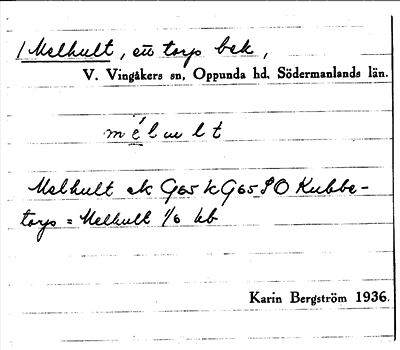 / Melhult, en torp bek,
V. Vingåkers sn, Oppunda hd, Södermanlands län.
mélult
Melhult ek G65 k G65 SO Kubbe-
torp = Melhult 1/6 kb
Karin Bergström 1936.